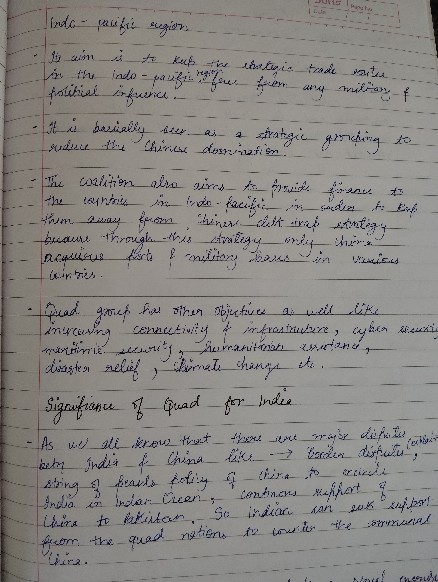 Indo - pacific region.
- Its aim is to keep the strategic trade routes
in the Indo - pacific region free from any military &
political influence.
- It is basically seen as a strategic grouping to
reduce the Chinese domination.
- The coalition also aims to provide finance to
the countries in Indo-Pacific in order to keep
them away from Chinese debt trap strategy
because through this strategy only China
acquires ports & military bases in various
countries.
- Quad group has other objectives as well like
increasing connectivity & infrastructure, cyber security
maritime security, humanitarian assistance,
disaster relief, climate change etc.
Significance of Quad for India
- As we all know that there are major disputes
betn India & China like → border disputes,
string of pearls policy of China to encircle
India in Indian Ocean, continous support of
China to Pakistan. So Indian can seek support
from the quad nations to counter the communal
China.